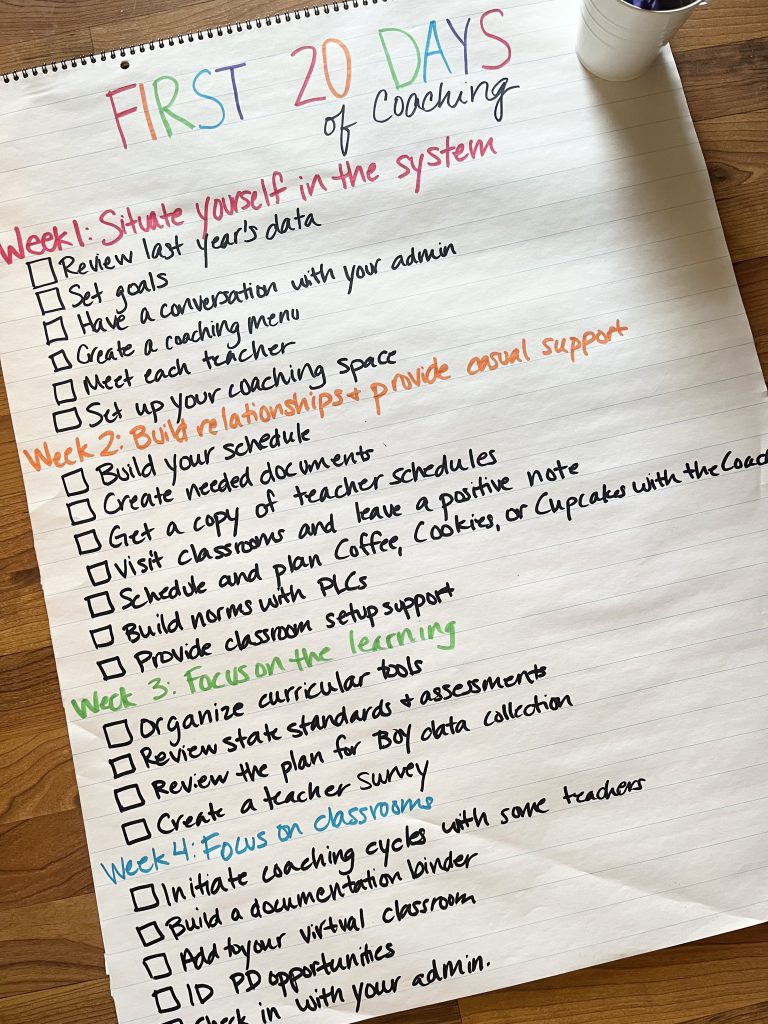 FIRST 20 DAYS
of Coaching
Week 1: Situate yourself in the system
Review last year's data
Set goals
Have a conversation with your admin
Create a coaching menu
Meet each teacher
Set up your coaching space
Week 2: Build relationships + provide casual support
Build your schedule
Create needed documents
Get a copy of teacher schedules
Visit classrooms and leave a positive note
Schedule and plan Coffee, Cookies, or Cupcakes with the Coac
Build norms with PLCs
Provide classroom setup support
Week 3: Focus on the learning
Organize curricular tools
Review state standards + assessments
Review the plan for BOY data collection
Create a teacher survey
Week 4: Focus on classrooms
Initiate coaching cycles with some teachers
Build a documentation binder
Add to your virtual classroom
ID PD opportunities
Check in with your admin.